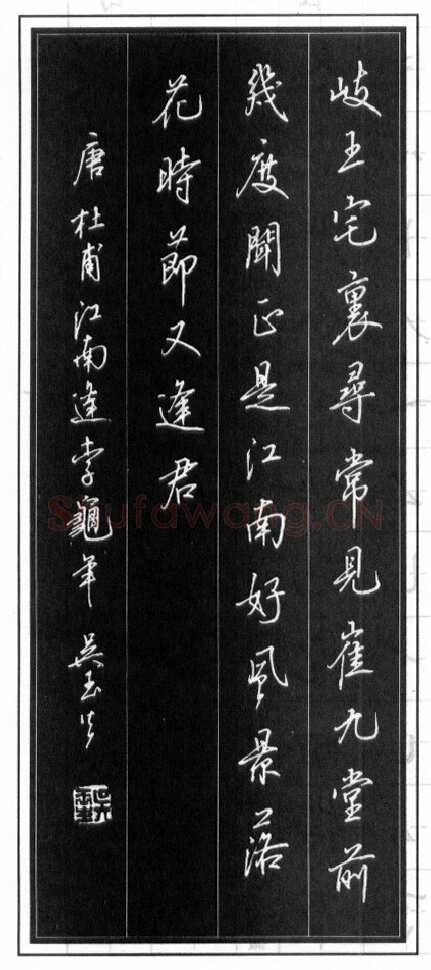 岐王宅裏尋常見崔九堂前
幾度聞正是江南好風景落
花時節又逢君
唐杜甫江南逢李龜年 吳玉生
Shufawang.CN